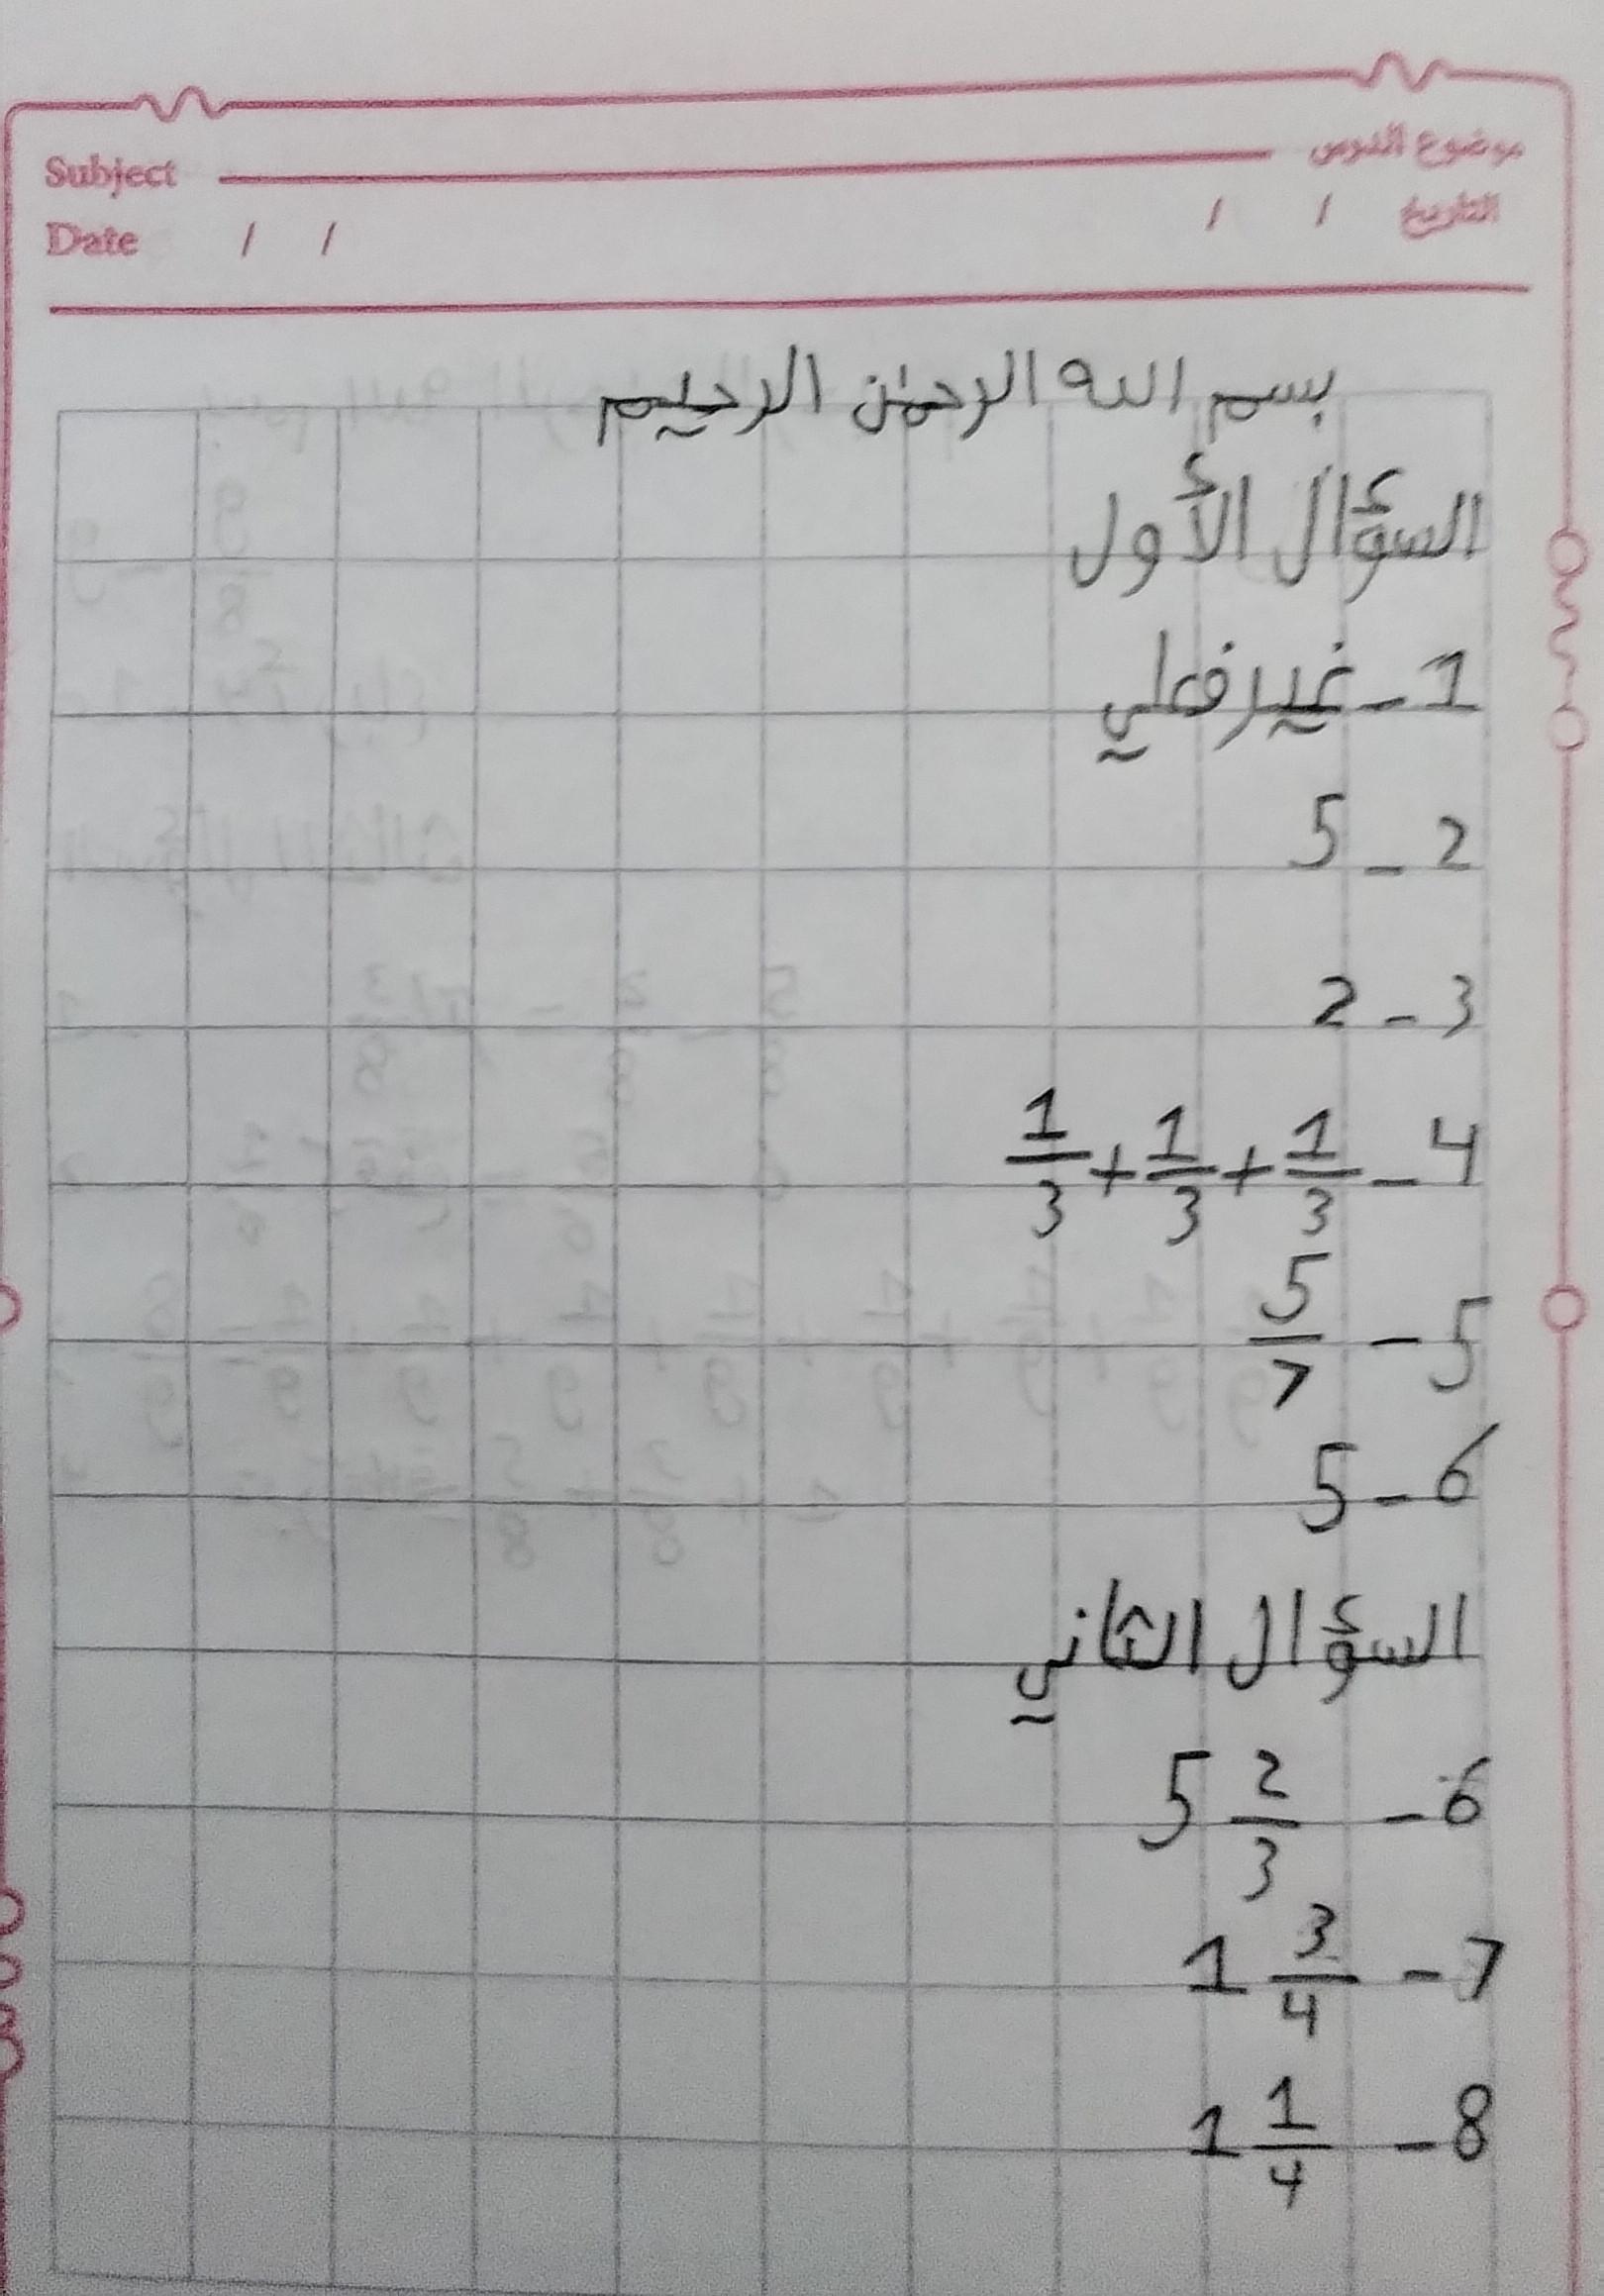 Subject موضوع الدرس
Date / / / / التاريخ
بسم الله الرحمن الرحيم
السؤال الأول
1 - غير فعلي
2 - 5
3 - 2
4 - 1/3 + 1/3 + 1/3
5 - 5/7
6 - 5
السؤال الثاني
6 - 5 2/3
7 - 1 3/4
8 - 1 1/4